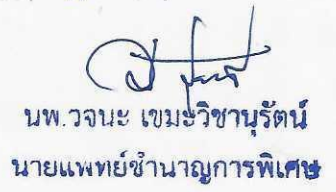 นพ.วจนะ เขมะวิชานุรัตน์
นายแพทย์ชำนาญการพิเศษ